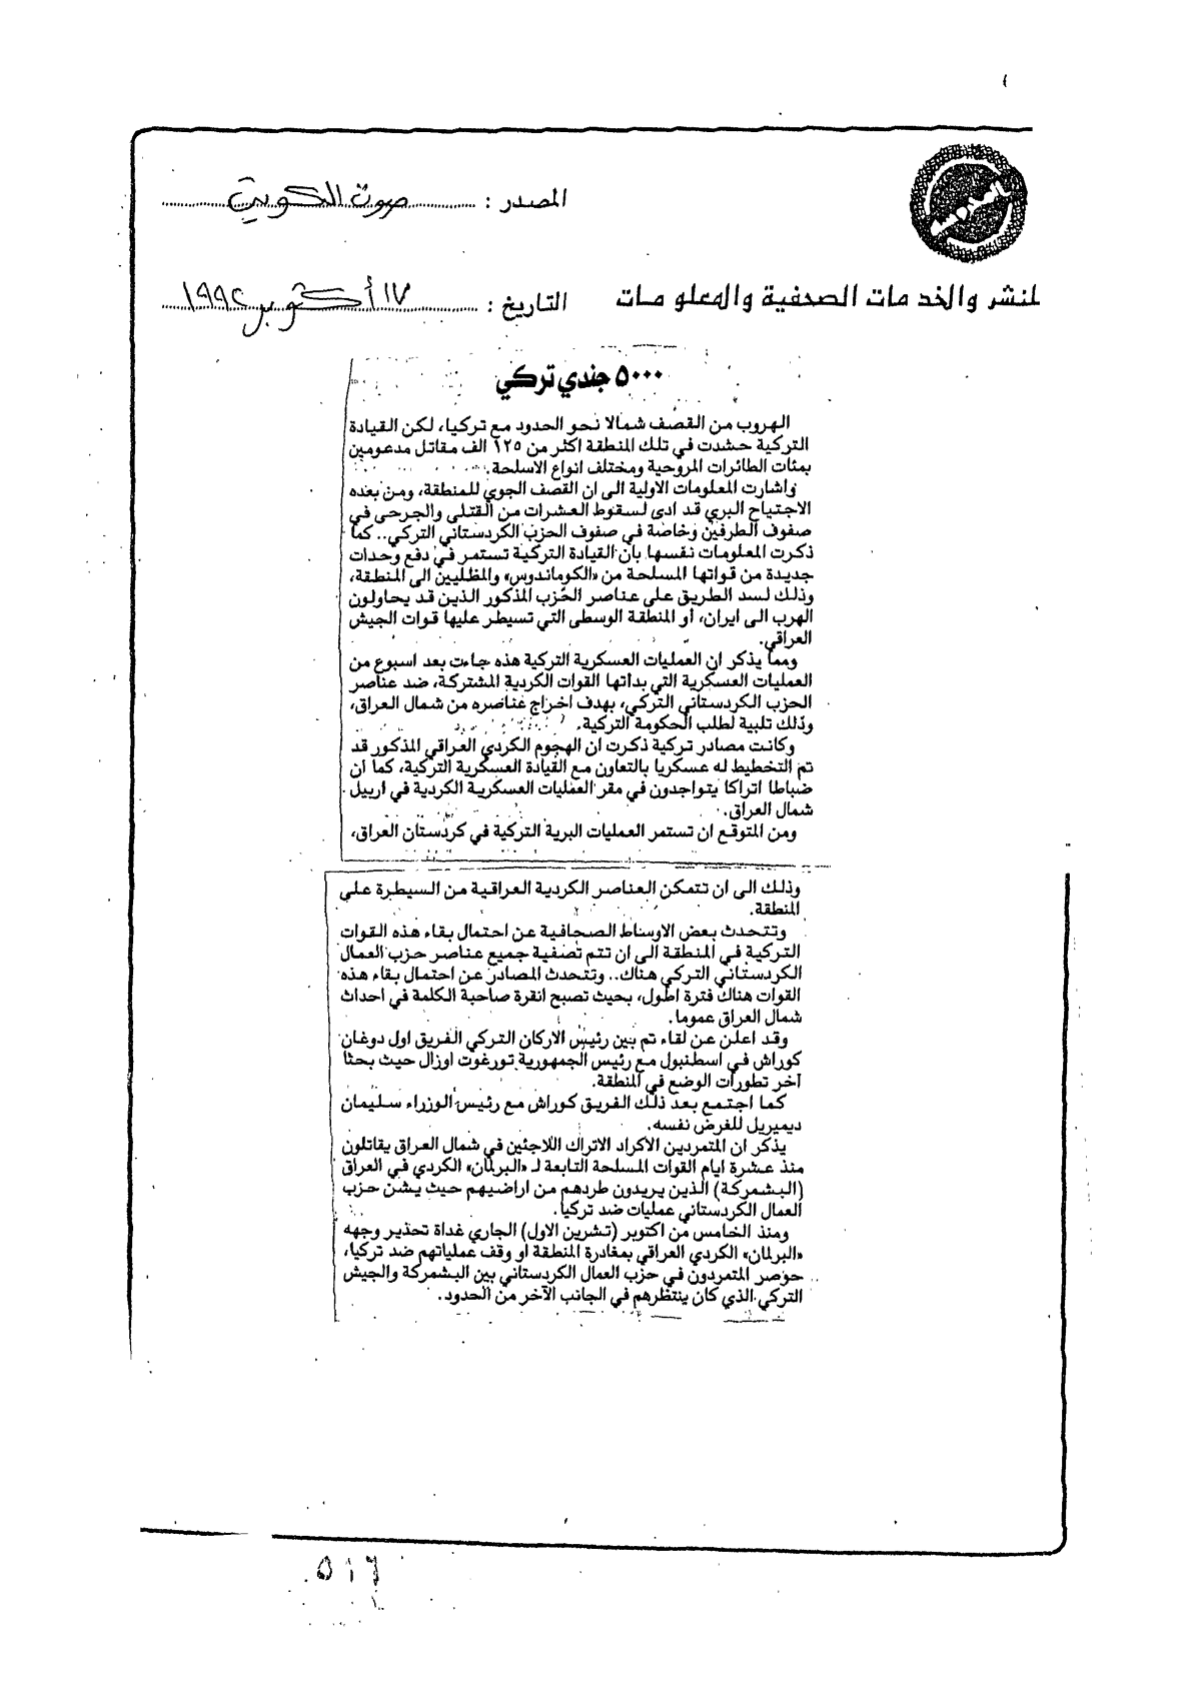 المصدر : صوت الكويت
للنشر والخدمات الصحفية والمعلومات
التاريخ : ١٧ أكتوبر ١٩٩٢
٥٠٠٠ جندي تركي
الهروب من القصف شمالا نحو الحدود مع تركيا، لكن القيادة
التركية حشدت في تلك المنطقة اكثر من ١٢٥ الف مقاتل مدعومين
بمئات الطائرات المروحية ومختلف انواع الاسلحة.
واشارت المعلومات الاولية الى ان القصف الجوي للمنطقة، ومن بعده
الاجتياح البري قد ادى لسقوط العشرات من القتلى والجرحى في
صفوف الطرفين وخاصة في صفوف الحزب الكردستاني التركي.. كما
ذكرت المعلومات نفسها بان القيادة التركية تستمر في دفع وحدات
جديدة من قواتها المسلحة من «الكوماندوس» والمظليين الى المنطقة،
وذلك لسد الطريق على عناصر الحزب المذكور الذين قد يحاولون
الهرب الى ايران، أو المنطقة الوسطى التي تسيطر عليها قوات الجيش
العراقي.
ومما يذكر ان العمليات العسكرية التركية هذه جاءت بعد اسبوع من
العمليات العسكرية التي بداتها القوات الكردية المشتركة، ضد عناصر
الحزب الكردستاني التركي، بهدف اخراج عناصره من شمال العراق،
وذلك تلبية لطلب الحكومة التركية.
وكانت مصادر تركية ذكرت ان الهجوم الكردي العراقي المذكور قد
تم التخطيط له عسكريا بالتعاون مع القيادة العسكرية التركية، كما ان
ضباطا اتراكا يتواجدون في مقر العمليات العسكرية الكردية في اربيل
شمال العراق.
ومن المتوقع ان تستمر العمليات البرية التركية في كردستان العراق،
وذلك الى ان تتمكن العناصر الكردية العراقية من السيطرة على
المنطقة.
وتتحدث بعض الاوساط الصحافية عن احتمال بقاء هذه القوات
التركية في المنطقة الى ان تتم تصفية جميع عناصر حزب العمال
الكردستاني التركي هناك.. وتتحدث المصادر عن احتمال بقاء هذه
القوات هناك فترة اطول، بحيث تصبح انقرة صاحبة الكلمة في احداث
شمال العراق عموما.
وقد اعلن عن لقاء تم بين رئيس الاركان التركي الفريق اول دوغان
كوراش في اسطنبول مع رئيس الجمهورية تورغوت اوزال حيث بحثا
آخر تطورات الوضع في المنطقة.
كما اجتمع بعد ذلك الفريق كوراش مع رئيس الوزراء سليمان
ديميريل للغرض نفسه.
يذكر ان المتمردين الاكراد الاتراك اللاجئين في شمال العراق يقاتلون
منذ عشرة ايام القوات المسلحة التابعة لـ «البرلمان» الكردي في العراق
(البشمركة) الذين يريدون طردهم من اراضيهم حيث يشن حزب
العمال الكردستاني عمليات ضد تركيا.
ومنذ الخامس من اكتوبر (تشرين الاول) الجاري غداة تحذير وجهه
«البرلمان» الكردي العراقي بمغادرة المنطقة او وقف عملياتهم ضد تركيا،
حوصر المتمردون في حزب العمال الكردستاني بين البشمركة والجيش
التركي الذي كان ينتظرهم في الجانب الآخر من الحدود.